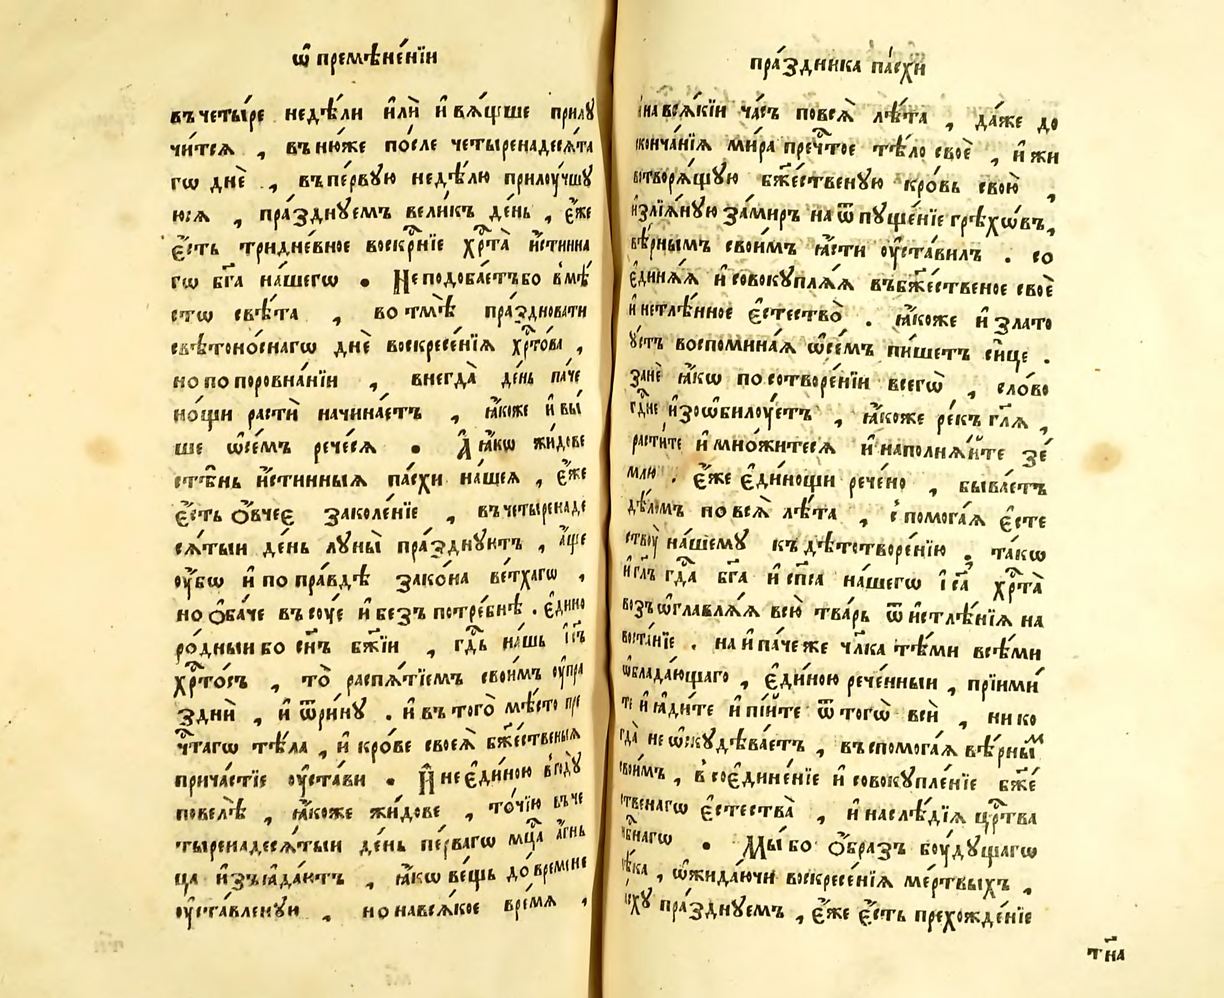 ѡ҆ премѣне́нїи
въчеты́ре недѣ́ли и҆лѝ и҆ вѧ́щьше прилꙋ
чи́тсѧ , въню́же по́сле четыренадесѧ́та
гѡ днѐ , въпе́рвую недѣ́лю прилоу́чшꙋ
юсѧ , пра́зднꙋемъ вели́къ де́нь , є҆́же
є҆́сть тридне́вное воскр҃нїе хр҃та̀ и҆́стинна
гѡ бг҃а на́шегѡ . Неподоба́етъбо вмѣ́
стѡ свѣ́та , во тмѣ̀ пра́здновати
свѣтоно́снагѡ днѐ воскресе́нїѧ хр҃то́ва ,
но по поровна́нїи , внегда̀ де́нь па́че
но́щи растѝ начина́етъ , ꙗ҆́коже и҆ вы́
ше ѡ҆се́мъ рече́сѧ . А҆ ꙗ҆́кѡ жи́дове
стѣ́нь и҆́стинныѧ па́схи на́шеѧ , є҆́же
є҆́сть ѻ҆́вчее заколе́нїе , въчетыренаде
сѧ́тыи де́нь лꙋны̀ пра́зднꙋютъ , а҆́ще
оу҆́бѡ и҆ по пра́вдѣ зако́на ве́тхагѡ ,
но ѻ҆ба́че въсоу́е и҆ безъ потре́бнѣ . є҆ди́но
ро́дныи бо сн҃ъ бж҃їи , гд҃ь на́шь і҆с҃ъ
хр҃то́съ , то̀ распѧ́тїемъ свои́мъ оу҆пра
зднѝ , и҆ ѿри́нꙋ . и҆ въ того̀ мѣ́сто пре
чт҃агѡ тѣ́ла , и҆ кро́ве своеѧ̀ бж҃е́ственыѧ
прича́стїе оу҆ста́ви . И҆ не є҆ди́ною вго́дꙋ
повелѣ̀ , ꙗ҆́коже жи́дове , то́чїю въче
тыренадесѧ́тыи де́нь пе́рвагѡ мц҃а а҆́гнь
ца и҆зъꙗда́ютъ , ꙗ҆́кѡ ве́щь до́ времене
оу҆ста́вленꙋи , но навсѧ́кое вре́мѧ ,
пра́здника па́схи
и҆ на всѧ́кїи ча́съ повсѧ̀ лѣ́та , да́же до
сконча́нїѧ ми́ра преч҃тое тѣ́ло своѐ , и҆ жи
вотворѧ́щꙋю бж҃е́ственꙋю кро́вь свою̀ ,
и҆злїѧ́нꙋю за́миръ на ѿпꙋще́нїе грѣхѡ́въ,
вѣ́рнымъ свои́мъ ꙗ҆́сти оу҆ста́вилъ . со
є҆динѧ́ѧ и҆ совокꙋплѧ́ѧ въбж҃е́ственое своѐ
и҆ нетлѣ́нное є҆стество̀ . ꙗ҆́коже и҆ злато
ꙋ́стъ воспомина́ѧ ѡ҆се́мъ пи́шетъ си́це .
занѐ ꙗ҆́кѡ по сотворе́нїи всегѡ̀ , сло́во
гд҃не и҆зоѡби́лоуетъ , ꙗ҆́коже ре́къ гл҃ѧ ,
расти́те и҆ мно́житесѧ и҆ наполнѧ́йте зе́
млю . є҆́же є҆ди́нощи рече́но , быва́етъ
дѣ́ломъ по всѧ̀ лѣ́та , спомога́ѧ є҆сте
ствꙋ̀ на́шемꙋ къ дѣтотворе́нїю , та́кѡ
и҆ гл҃ъ гд҃а бг҃а и҆ сп҃са на́шегѡ і҆с҃а хр҃та̀
возъѡглавлѧ́ѧ всю̀ тва́рь ѿ и҆стлѣ́нїѧ на
воста́нїе . на и҆ па́че же чл҃ка тѣ́ми всѣ́ми
ѡ҆блада́ющаго , є҆ди́ною рече́нныи , прїими́
те и҆ ꙗ҆ди́те и҆ пі́йте ѿ тогѡ̀ всѝ , нико
гда̀ не ѡ҆скꙋдѣва́етъ , въспомога́ѧ вѣ́рным
свои́мъ , всоедине́нїе и҆ совокꙋпле́нїе бж҃е́
ственагѡ є҆стества̀ , и҆ наслѣ́дїѧ цр҃тва
нб҃наго . Мы́ бо ѻ҆́бразъ боу́дꙋщагѡ
вѣ́ка , ѡ҆жида́ючи воскресе́нїѧ ме́ртвыхъ ,
па́схꙋ пра́зднꙋемъ , є҆́же є҆́сть прехожде́нїе
т҃на